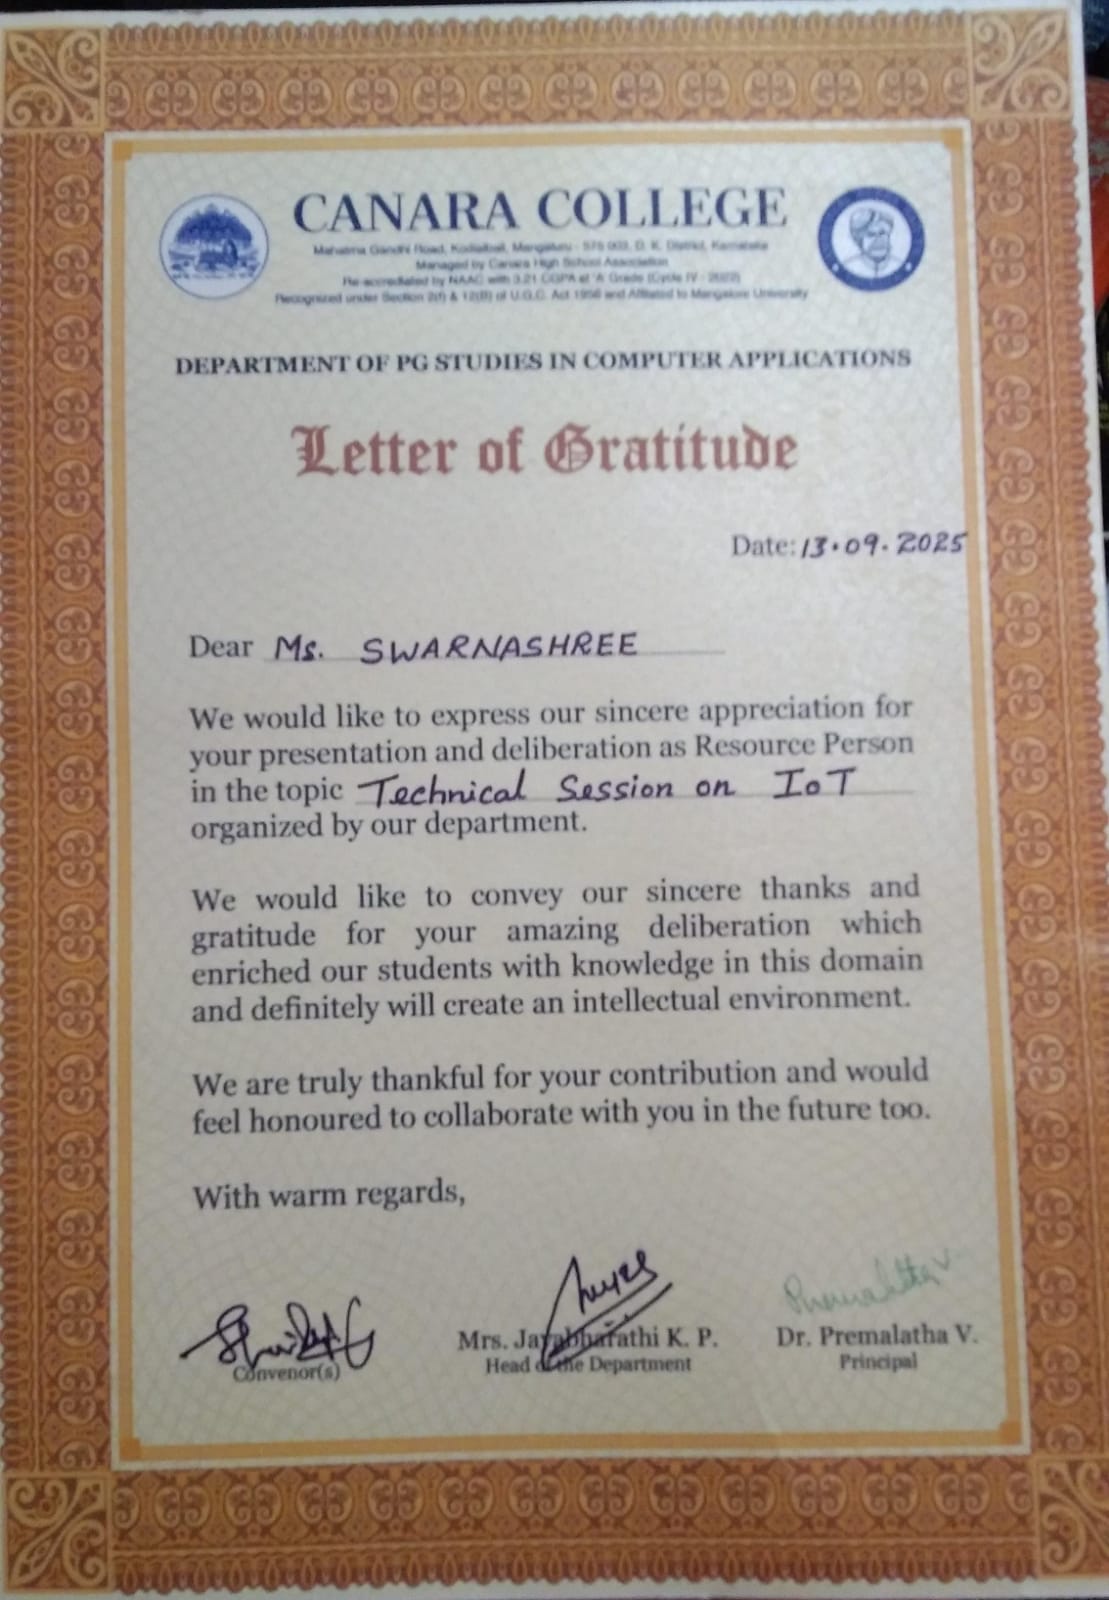 CANARA COLLEGE
Mahatma Gandhi Road, Kodialbail, Mangaluru - 575 003, D. K. District, Karnataka
Managed by Canara High School Association
Re-accredited by NAAC with 3.21 CGPA at 'A' Grade (Cycle IV - 2022)
Recognized under Section 2(f) & 12(B) of U.G.C. Act 1956 and Affiliated to Mangalore University
DEPARTMENT OF PG STUDIES IN COMPUTER APPLICATIONS
Letter of Gratitude
Date: 13.09.2025
Dear Ms. SWARNASHREE
We would like to express our sincere appreciation for
your presentation and deliberation as Resource Person
in the topic Technical Session on IoT
organized by our department.
We would like to convey our sincere thanks and
gratitude for your amazing deliberation which
enriched our students with knowledge in this domain
and definitely will create an intellectual environment.
We are truly thankful for your contribution and would
feel honoured to collaborate with you in the future too.
With warm regards,
Premalatha V
Mrs. Jayabharathi K. P. Dr. Premalatha V.
Convenor(s) Head of the Department Principal